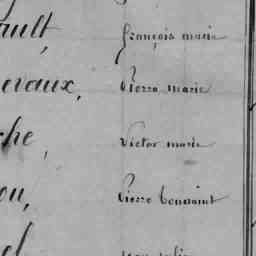 ault, françois marie
evaux, Pierre marie
che, Victor marie
ou, Pierre toussaint
el